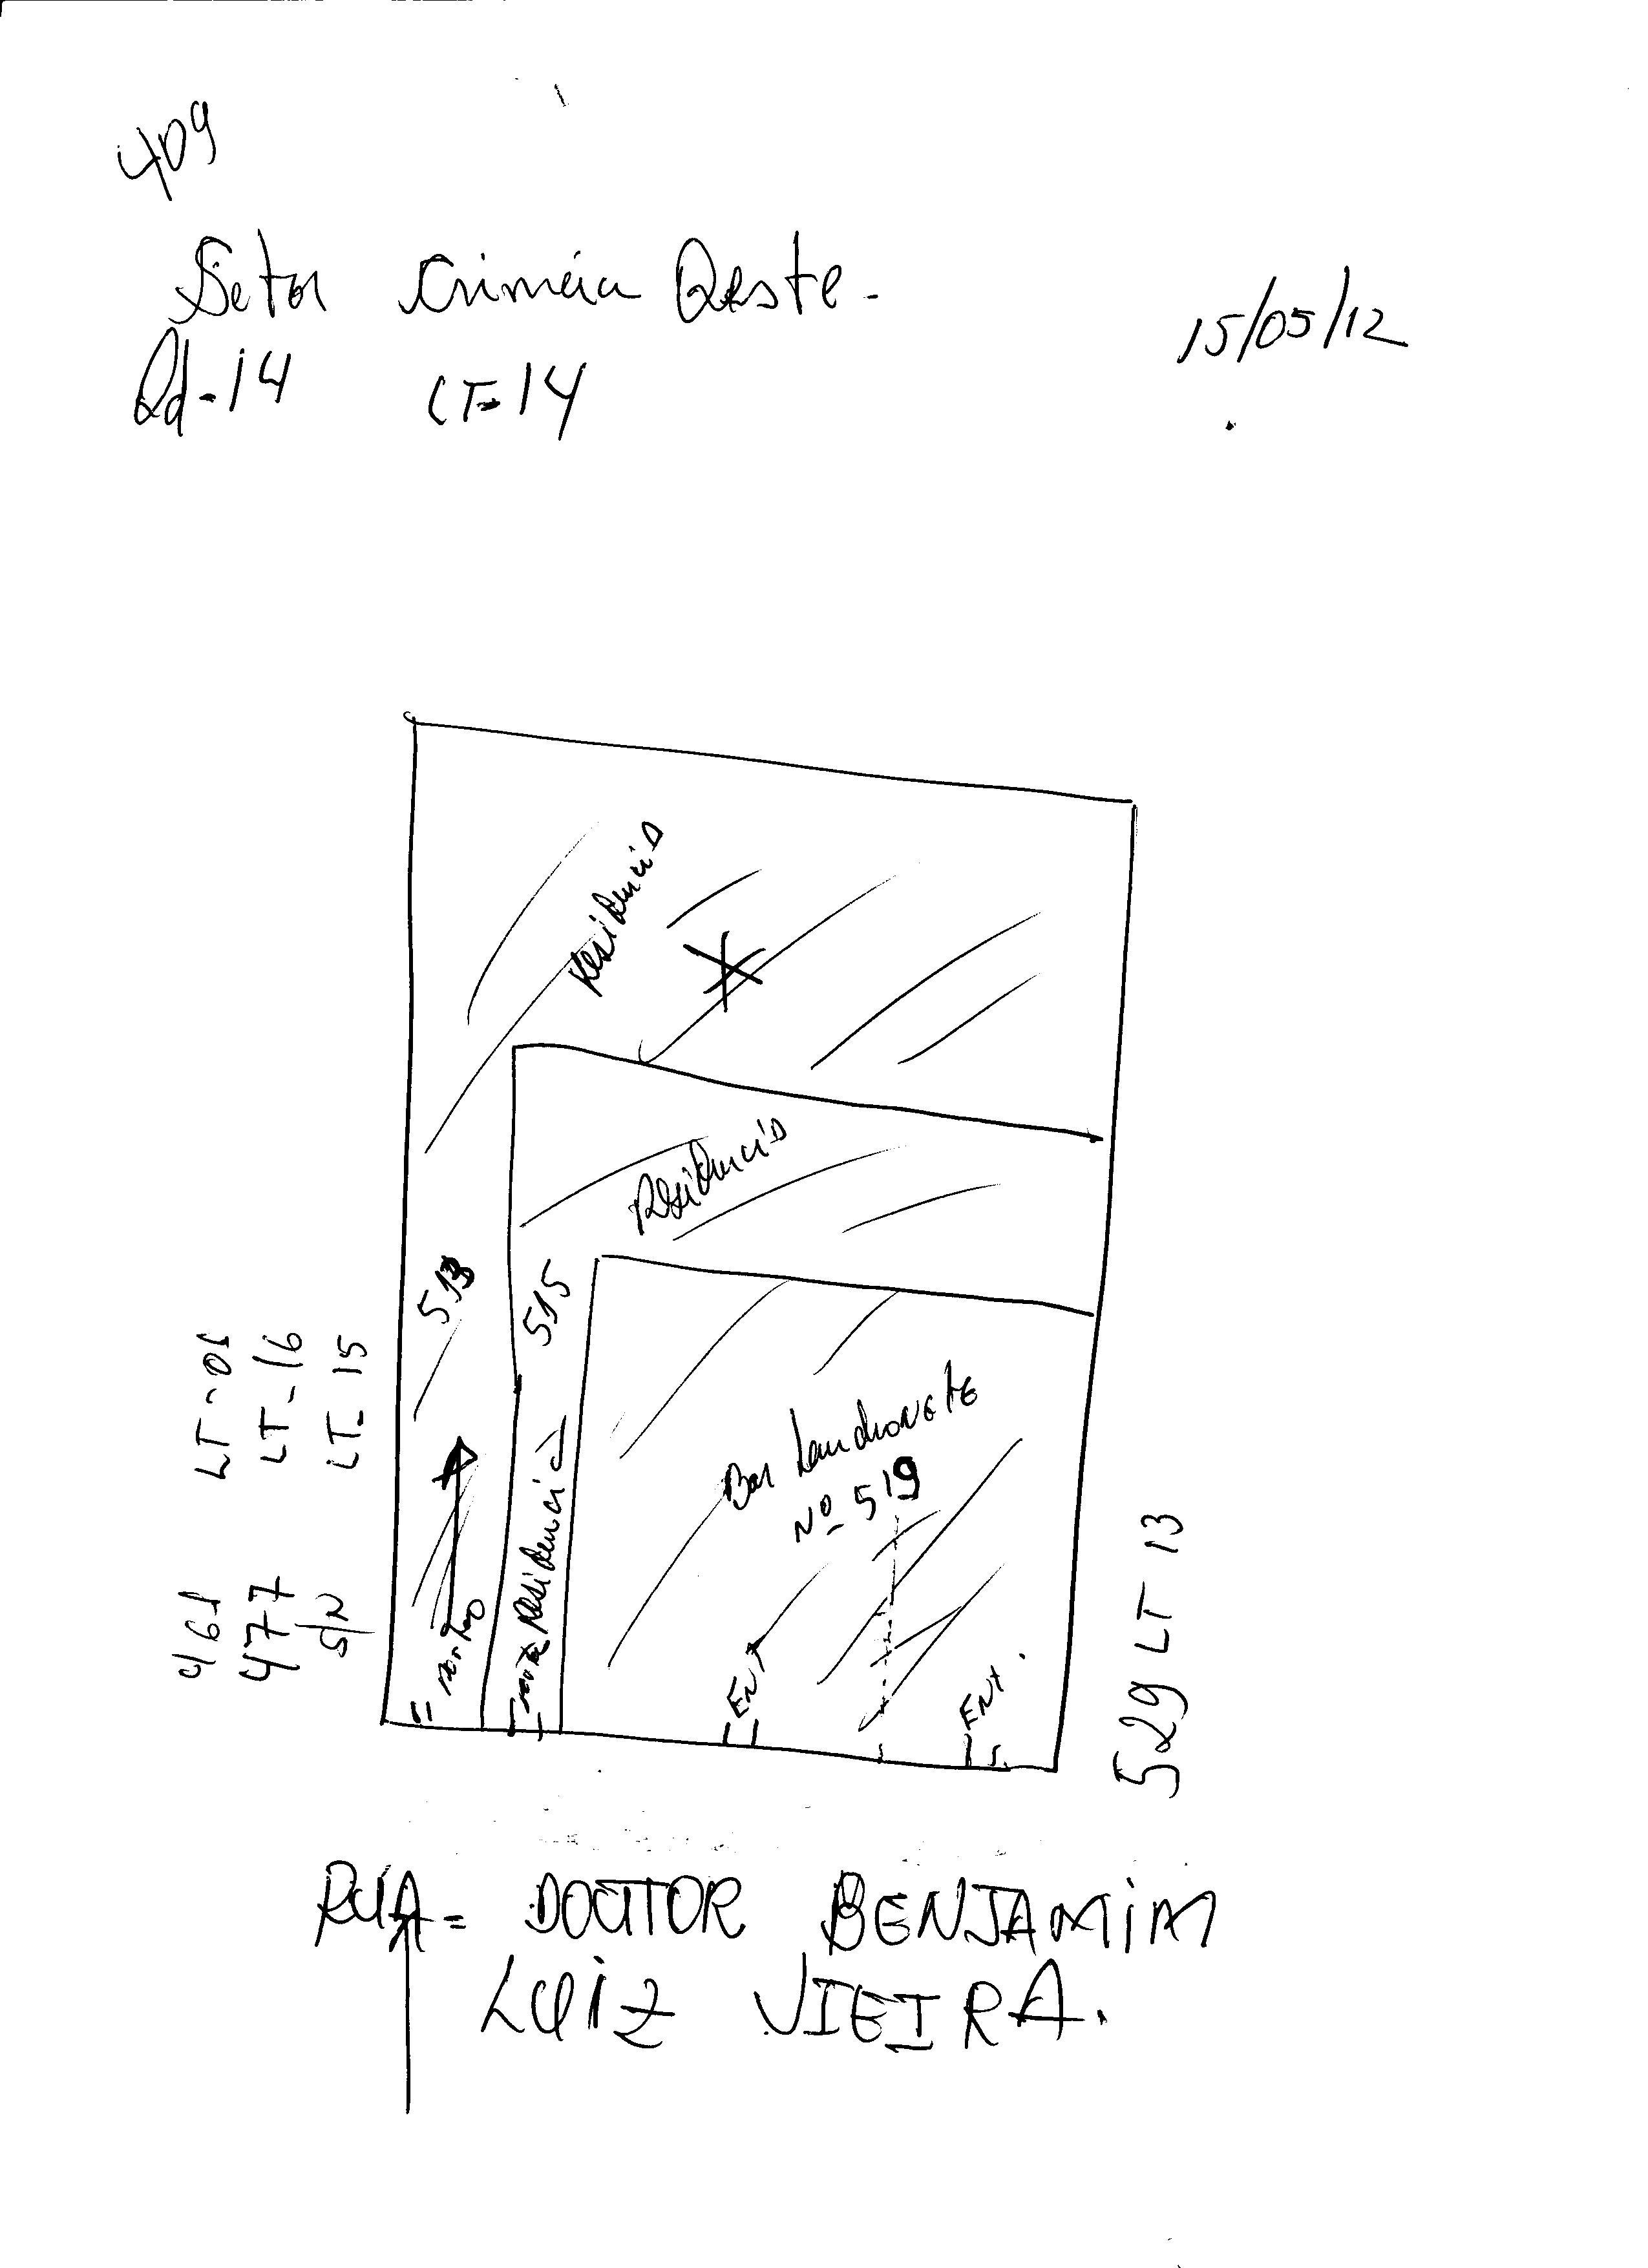 409
Setor Crimeia Oeste -
15/05/12
Qd-14 LT=14
Residencia
Residencia
513
515
LT-01
LT-16
LT-15
Bar Lanchonete
Nº 519
Residencia
461
477
S/N
Ent
Ent.
529 LT 13
RUA= DOUTOR BENJAMIM
LUIZ VIEIRA.